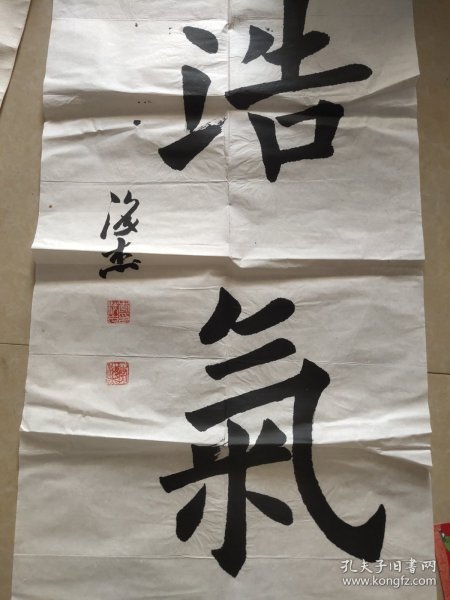 浩
氣
海杰
孔夫子旧书网
www.kongfz.com